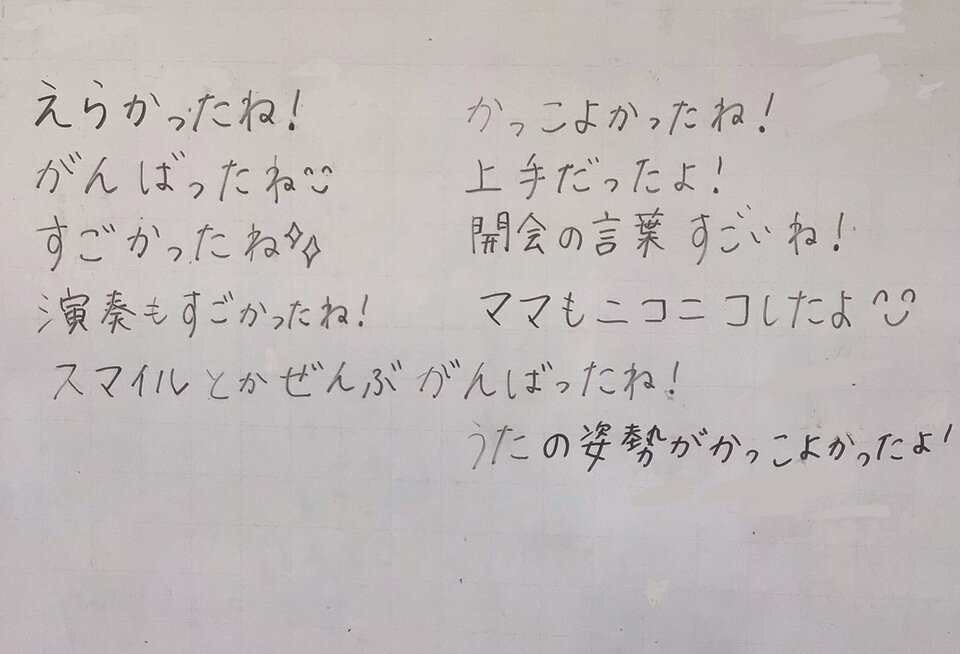 えらかったね!
がんばったね
すごかったね
演奏もすごかったね!
かっこよかったね!
上手だったよ!
開会の言葉 すごいね!
ママもニコニコしたよ
スマイルとかぜんぶがんばったね!
うたの姿勢がかっこよかったよ!